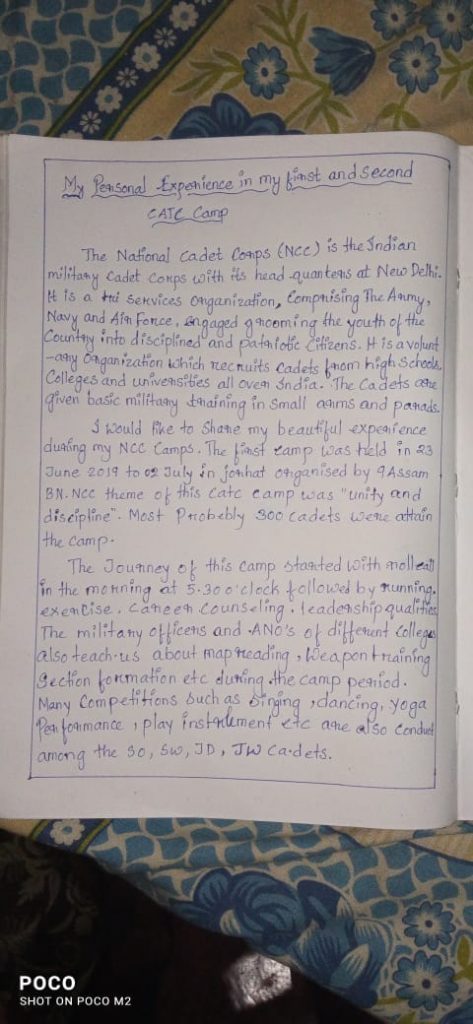 My Personal Experience in my first and second
CATC Camp
The National Cadet Corps (NCC) is the Indian
military Cadet Corps with its head quarters at New Delhi.
It is a tri services Organization, Comprising The Army,
Navy and Air Force, engaged grooming the youth of the
Country into disciplined and patriotic Citizens. It is a volunt
-ary Organization which recruits cadets from high Schools,
Colleges and universities all over India. The Cadets are
given basic military training in small arms and parads.
I would like to share my beautiful experience
during my NCC Camps. The first camp was held in 23
June 2019 to 02 July in jorhat organised by 9 Assam
BN. NCC theme of this Catc camp was "unity and
discipline". Most Probebly 300 cadets were attain
the camp.
The Journey of this camp started with rollcall
in the morning at 5.30 o'clock followed by running,
exercise, career counseling, leadership qualities
The military officers and ANO's of different Colleges
also teach us about mapreading, Weapon training
Section formation etc during the camp period.
Many Competitions such as Singing, dancing, yoga
Performance, play instrument etc are also Conduct
among the SD, SW, JD, JW Cadets.
POCO
SHOT ON POCO M2